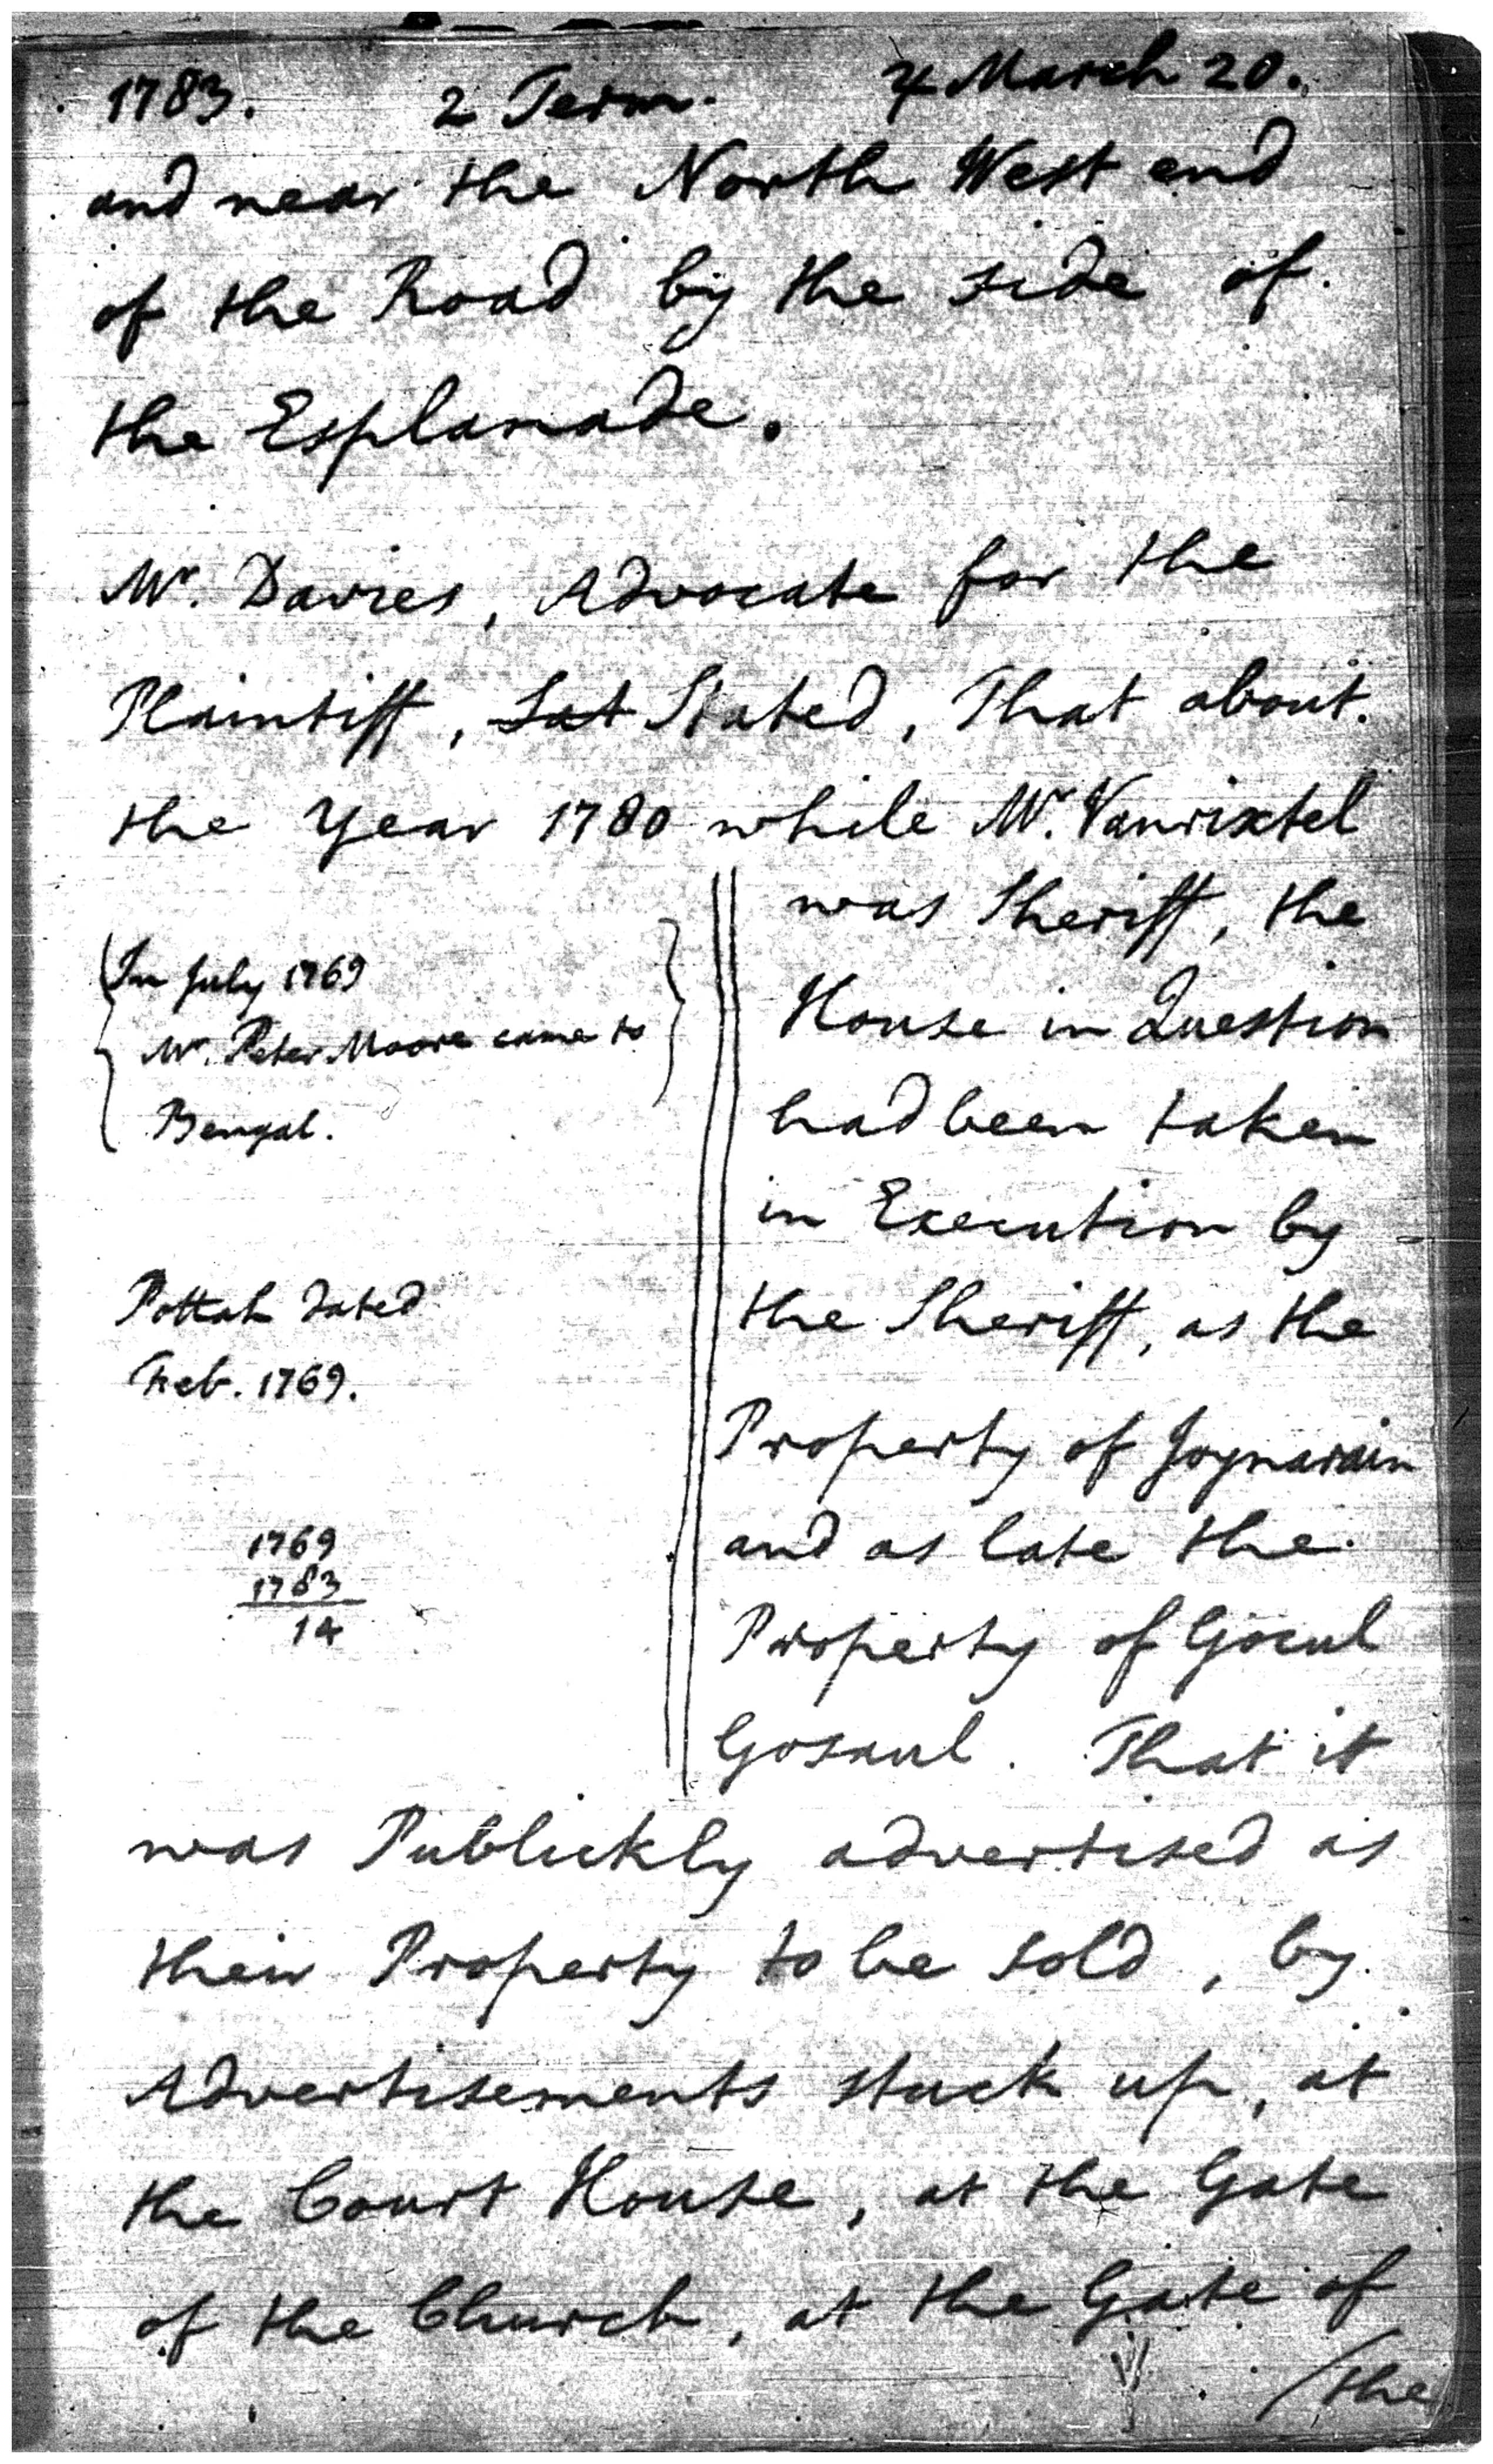 1783. 2 Term. ♃ March 20.
and near the North West end
of the Road by the side of
the Esplanade.
Mr. Davies, Advocate for the
Plaintiff, Sat Stated, That about
the Year 1780 while Mr. Vanrixtel
was Sheriff, the
House in Question
had been taken
in Execution by
the Sheriff, as the
Property of Joynarain
and as late the
Property of Gocul
Gosaul. That it
In July 1769
Mr. Peter Moore came to
Bengal.
Pottah dated
Feb. 1769.
1769
1783
14
was Publickly advertised as
their Property to be sold, by
Advertisements stuck up, at
the Court House, at the Gate
of the Church, at the Gate of
/the